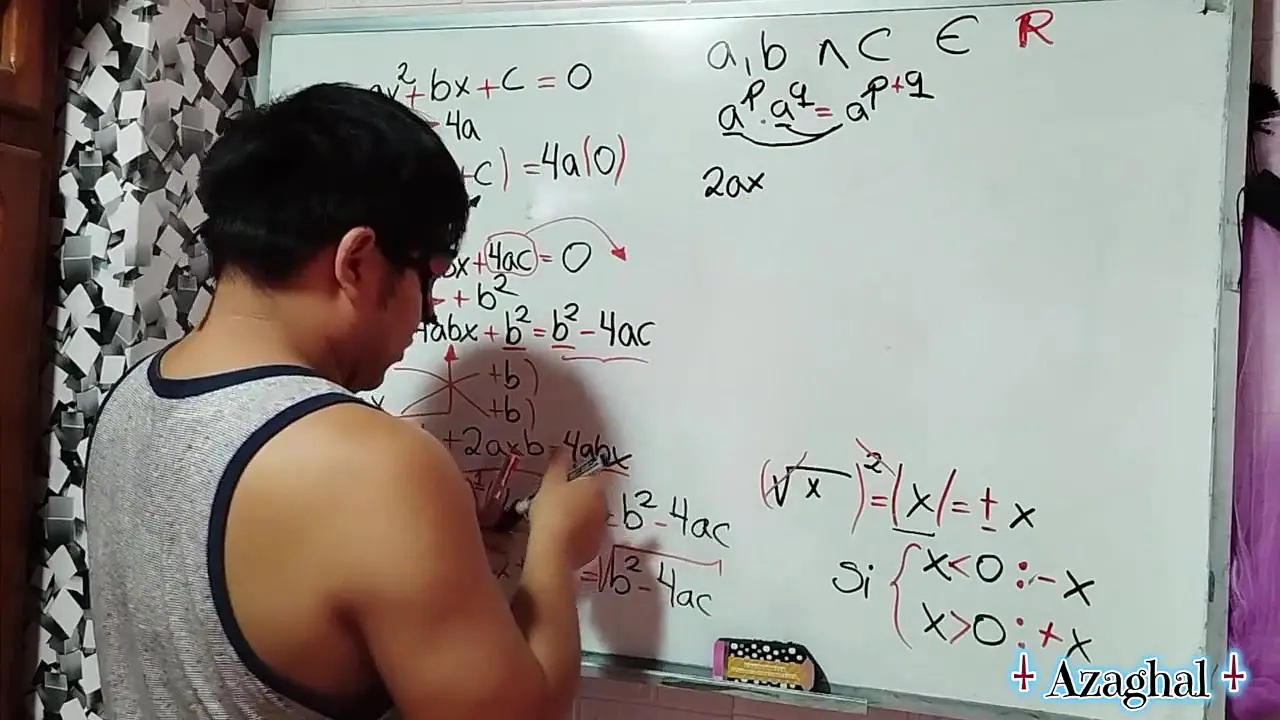 ax²+bx+c=0
4a
+c)=4a(0)
bx+4ac=0
+b²
4abx+b²=b²-4ac
+b)
x +b)
+2axb=4abx
=b²-4ac
=√b²-4ac
a,b ∧ C ∈ R
a^p·a^q=a^p+q
2ax
(√x)²=|x|=±x
Si { x<0:-x
x>0:+x
Azaghal